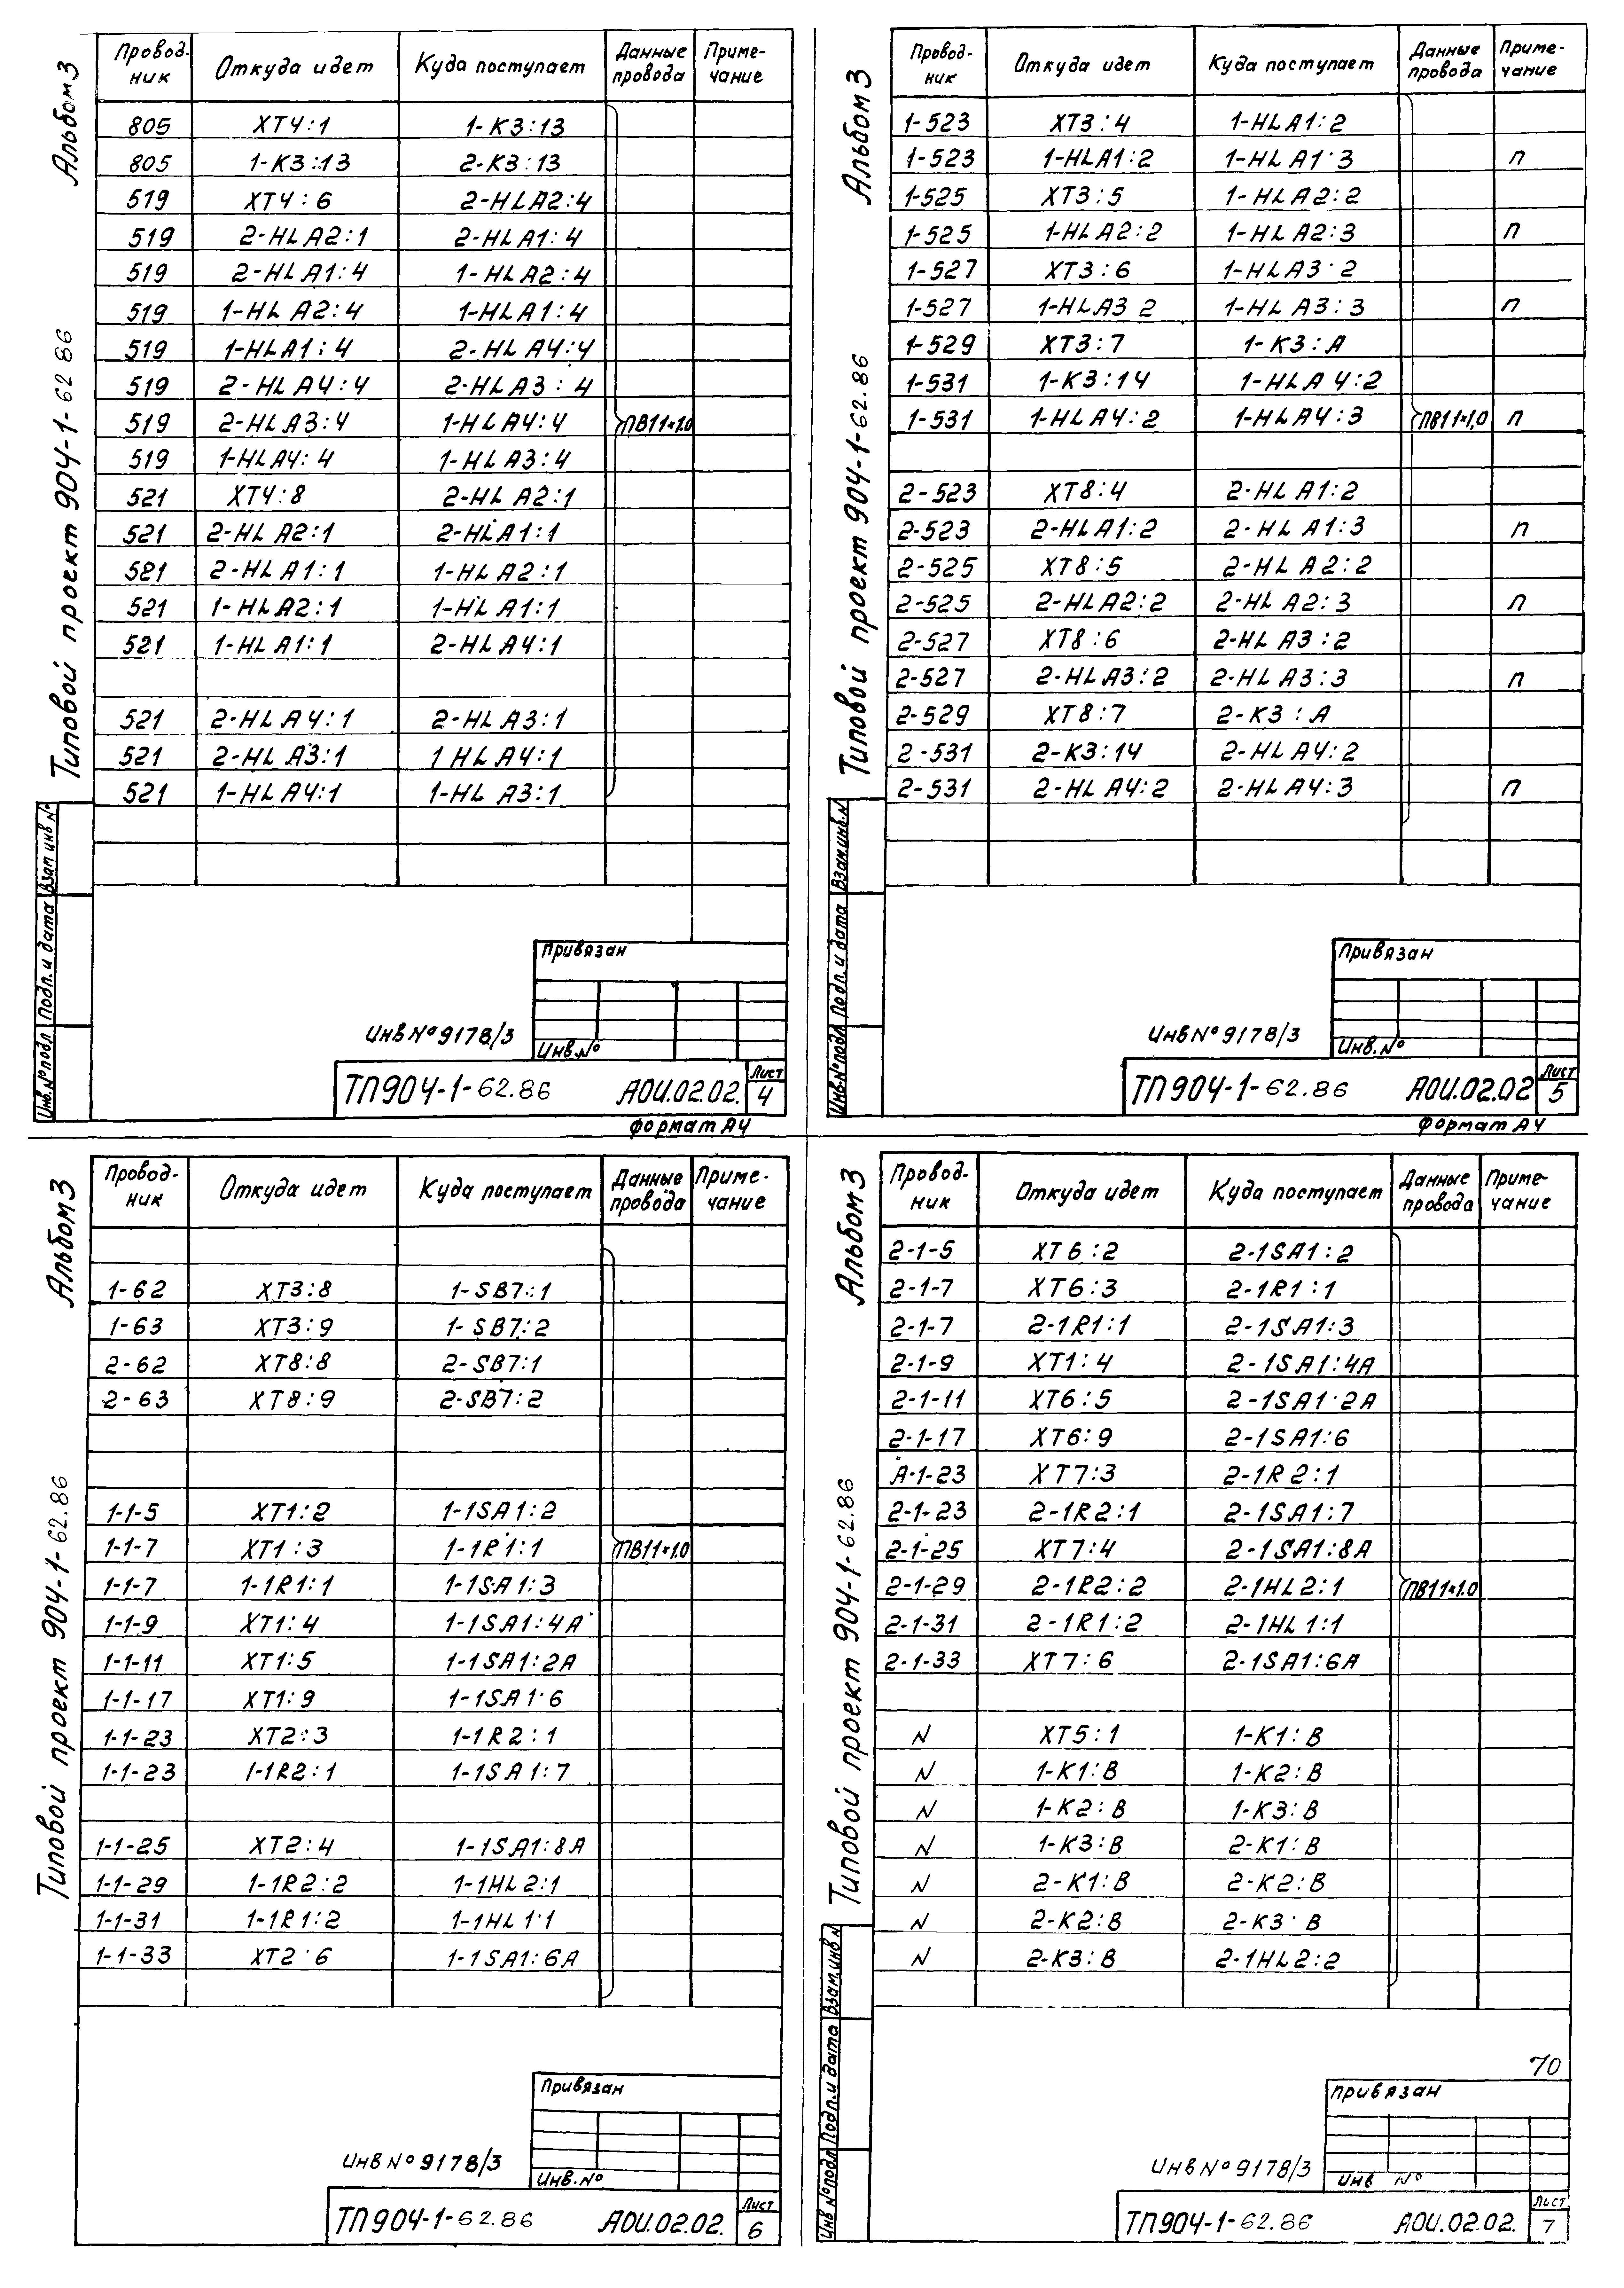 Альбом 3
Типовой проект 904-1-62.86
Провод-ник Откуда идет Куда поступает Данные провода Приме-чание
805 XT4:1 1-K3:13
805 1-K3:13 2-K3:13
519 XT4:6 2-HLA2:4
519 2-HLA2:1 2-HLA1:4
519 2-HLA1:4 1-HLA2:4
519 1-HLA2:4 1-HLA1:4
519 1-HLA1:4 2-HLA4:4
519 2-HLA4:4 2-HLA3:4
519 2-HLA3:4 1-HLA4:4 ПВ1 1×1.0
519 1-HLA4:4 1-HLA3:4
521 XT4:8 2-HLA2:1
521 2-HLA2:1 2-HLA1:1
521 2-HLA1:1 1-HLA2:1
521 1-HLA2:1 1-HLA1:1
521 1-HLA1:1 2-HLA4:1
521 2-HLA4:1 2-HLA3:1
521 2-HLA3:1 1 HLA4:1
521 1-HLA4:1 1-HLA3:1
Взам инв №
Подп. и дата
Инв.№подл
Привязан
Инв.№
Инв № 9178/3
ТП904-1-62.86 АОИ.02.02. Лист 4
Формат А4
Альбом 3
Типовой проект 904-1-62.86
Провод-ник Откуда идет Куда поступает Данные провода Приме-чание
1-523 XT3:4 1-HLA1:2
1-523 1-HLA1:2 1-HLA1:3 п
1-525 XT3:5 1-HLA2:2
1-525 1-HLA2:2 1-HLA2:3 п
1-527 XT3:6 1-HLA3:2
1-527 1-HLA3 2 1-HLA3:3 п
1-529 XT3:7 1-K3:A
1-531 1-K3:14 1-HLA4:2
1-531 1-HLA4:2 1-HLA4:3 ПВ1 1×1,0 п
2-523 XT8:4 2-HLA1:2
2-523 2-HLA1:2 2-HLA1:3 п
2-525 XT8:5 2-HLA2:2
2-525 2-HLA2:2 2-HLA2:3 п
2-527 XT8:6 2-HLA3:2
2-527 2-HLA3:2 2-HLA3:3 п
2-529 XT8:7 2-K3:A
2-531 2-K3:14 2-HLA4:2
2-531 2-HLA4:2 2-HLA4:3 п
Взам.инв.№
Подп. и дата
Инв.№подл
Привязан
Инв.№
Инв № 9178/3
ТП904-1-62.86 АОИ.02.02 Лист 5
Формат А4
Альбом 3
Типовой проект 904-1-62.86
Провод-ник Откуда идет Куда поступает Данные провода Приме-чание
1-62 XT3:8 1-SB7:1
1-63 XT3:9 1-SB7:2
2-62 XT8:8 2-SB7:1
2-63 XT8:9 2-SB7:2
1-1-5 XT1:2 1-1SA1:2
1-1-7 XT1:3 1-1R1:1 ПВ1 1×1.0
1-1-7 1-1R1:1 1-1SA1:3
1-1-9 XT1:4 1-1SA1:4A
1-1-11 XT1:5 1-1SA1:2A
1-1-17 XT1:9 1-1SA1:6
1-1-23 XT2:3 1-1R2:1
1-1-23 1-1R2:1 1-1SA1:7
1-1-25 XT2:4 1-1SA1:8A
1-1-29 1-1R2:2 1-1HL2:1
1-1-31 1-1R1:2 1-1HL1:1
1-1-33 XT2:6 1-1SA1:6A
Привязан
Инв.№
Инв № 9178/3
ТП904-1-62.86 АОИ.02.02. Лист 6
Альбом 3
Типовой проект 904-1-62.86
Провод-ник Откуда идет Куда поступает Данные провода Приме-чание
2-1-5 XT6:2 2-1SA1:2
2-1-7 XT6:3 2-1R1:1
2-1-7 2-1R1:1 2-1SA1:3
2-1-9 XT1:4 2-1SA1:4A
2-1-11 XT6:5 2-1SA1:2A
2-1-17 XT6:9 2-1SA1:6
A-1-23 XT7:3 2-1R2:1
2-1-23 2-1R2:1 2-1SA1:7
2-1-25 XT7:4 2-1SA1:8A
2-1-29 2-1R2:2 2-1HL2:1 ПВ1 1×1.0
2-1-31 2-1R1:2 2-1HL1:1
2-1-33 XT7:6 2-1SA1:6A
N XT5:1 1-K1:B
N 1-K1:B 1-K2:B
N 1-K2:B 1-K3:B
N 1-K3:B 2-K1:B
N 2-K1:B 2-K2:B
N 2-K2:B 2-K3:B
N 2-K3:B 2-1HL2:2
Взам.инв.№
Подп. и дата
Инв №подл
70
Привязан
Инв №
Инв № 9178/3
ТП904-1-62.86 АОИ.02.02. Лист 7